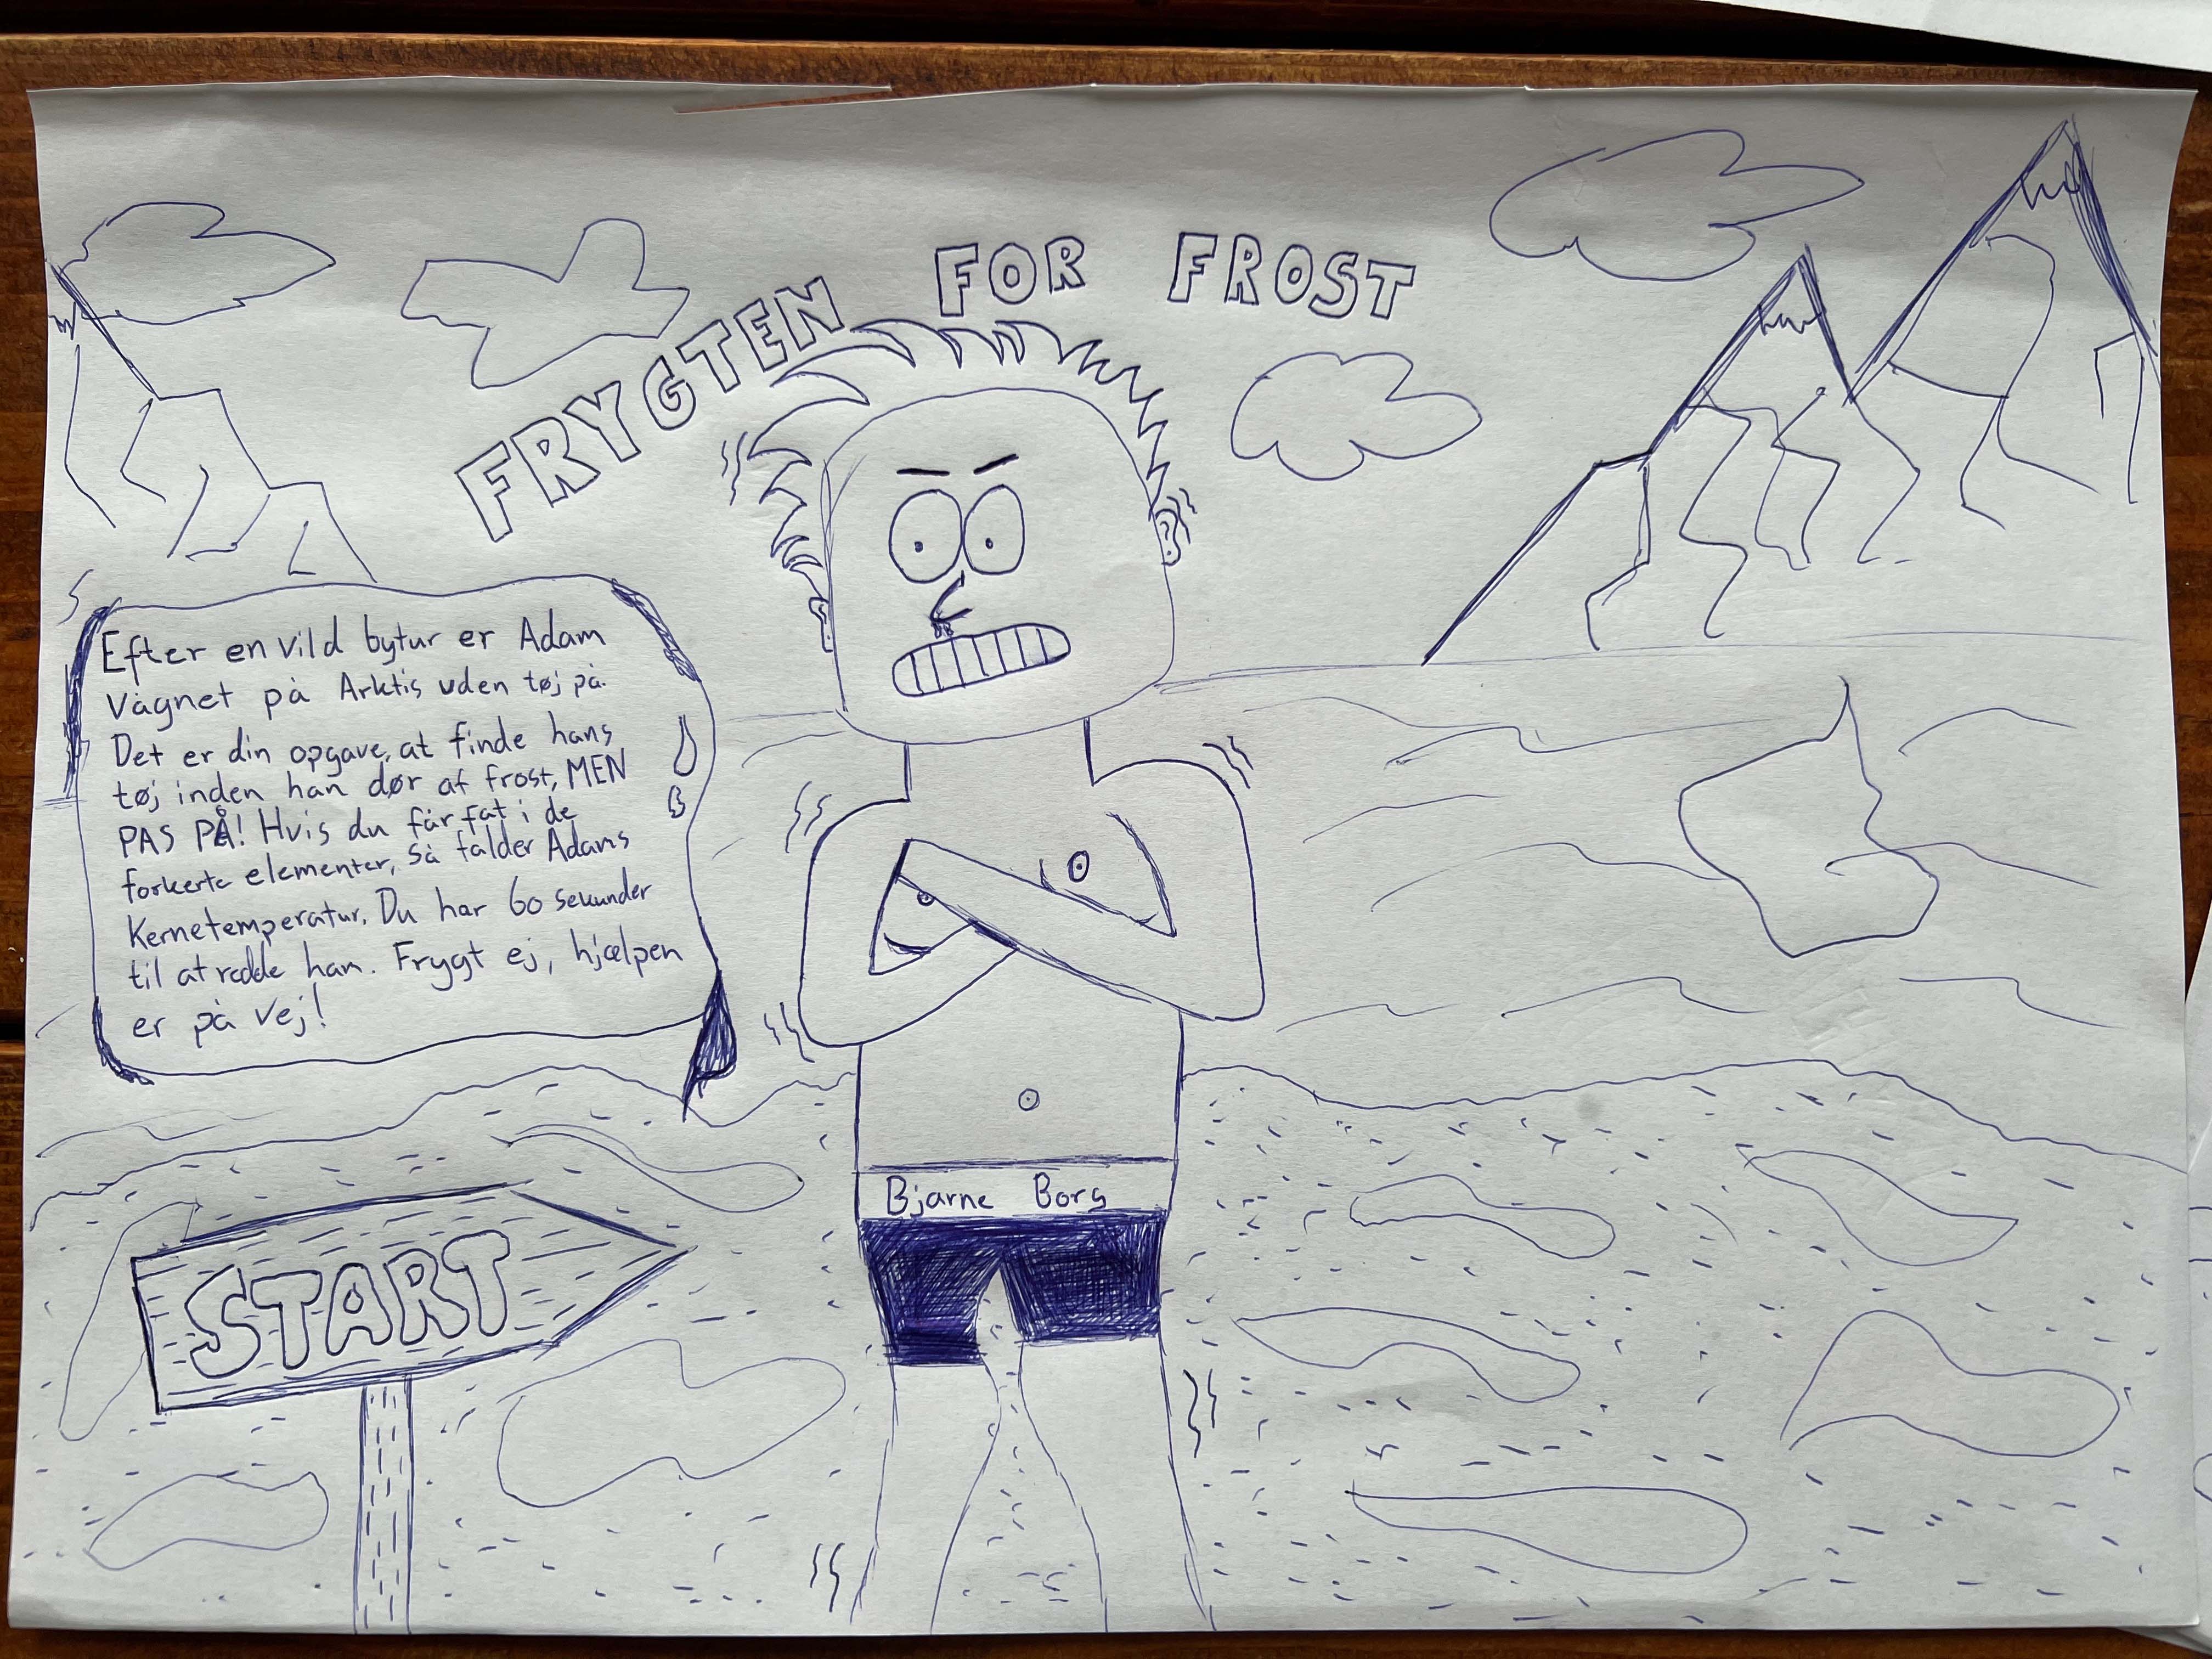 FRYGTEN FOR FROST
Efter en vild bytur er Adam
vågnet på Arktis uden tøj på.
Det er din opgave, at finde hans
tøj inden han dør af frost, MEN
PAS PÅ! Hvis du får fat i de
forkerte elementer, så falder Adams
Kernetemperatur. Du har 60 sekunder
til at redde ham. Frygt ej, hjælpen
er på vej!
Bjarne Borg
START